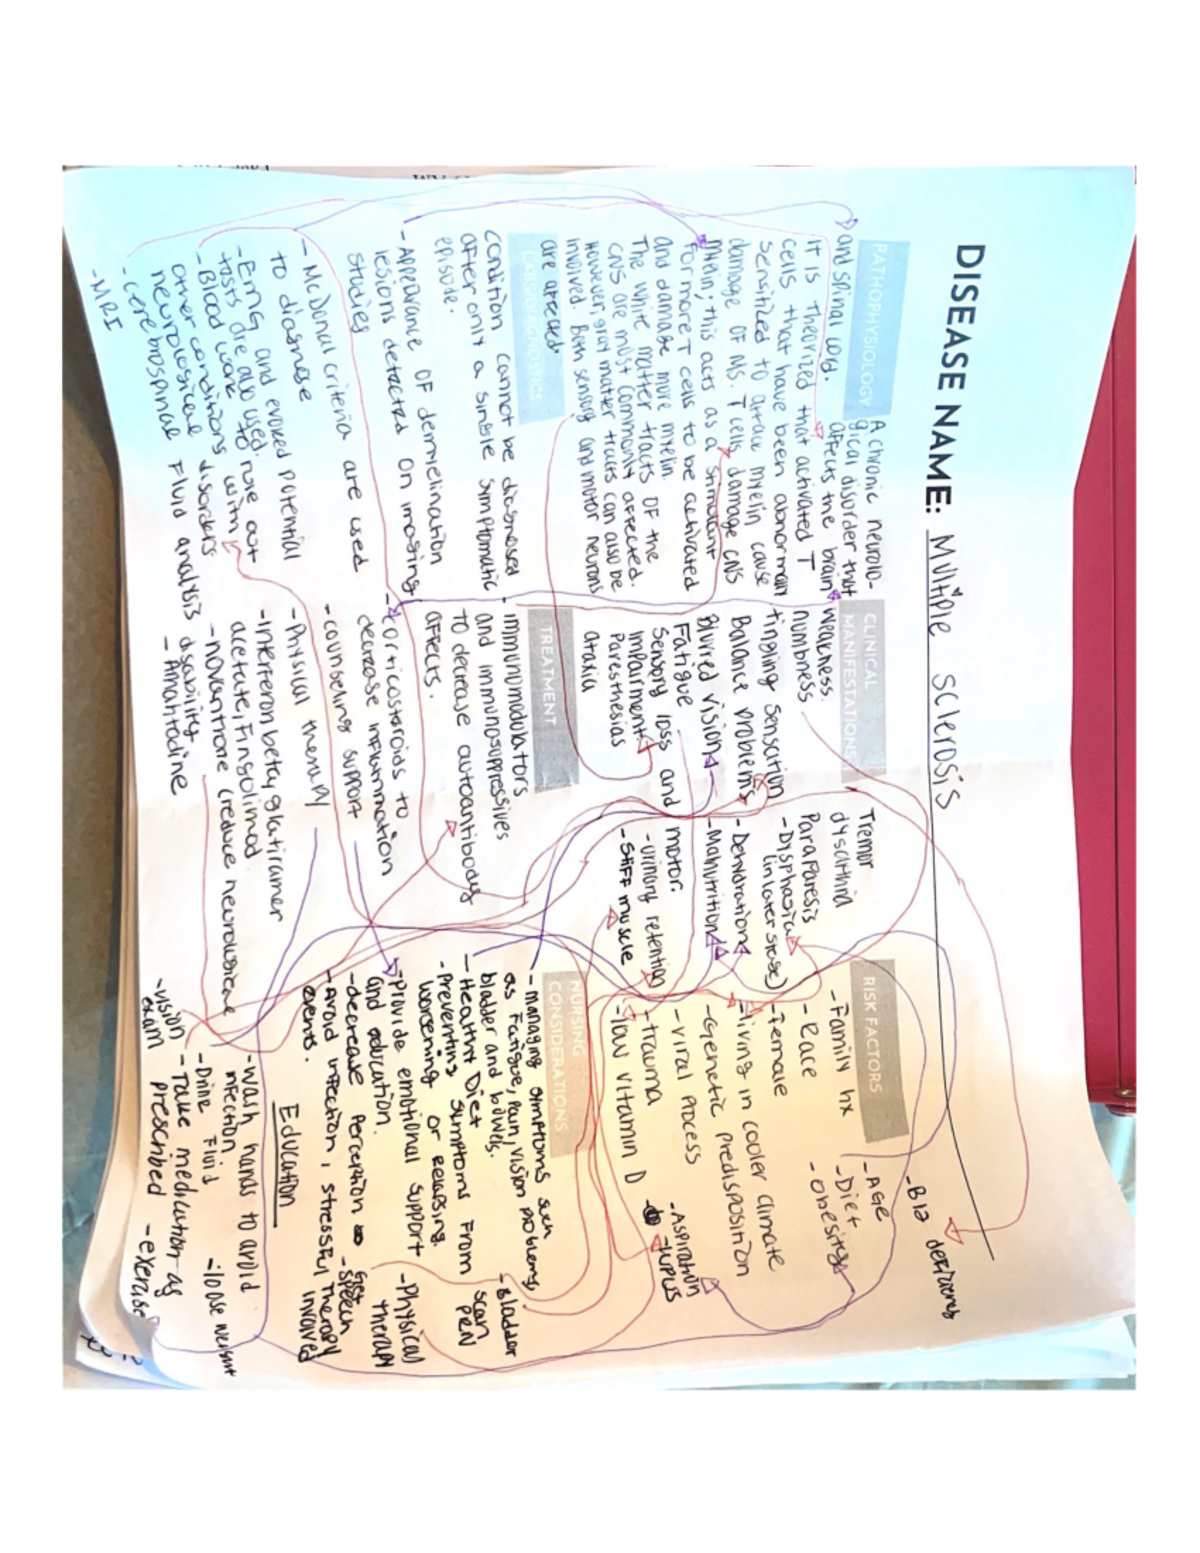 DISEASE NAME: Multiple sclerosis
PATHOPHYSIOLOGY
A chronic neurolo-
gical disorder that
affects the brain
and spinal cord.
It is theorized that activated T
cells that have been abnormally
sensitized to attack myelin cause
damage of NS. T cells damage CNS
myelin; this acts as a stimulant
for more T cells to be activated
and damage more myelin.
The white matter tracts of the
CNS are most commonly affected.
However, gray matter tracts can also be
involved. Both sensory and motor neurons
are affected.
CLINICAL
MANIFESTATIONS
Weakness.
numbness
tingling sensation
Balance problems
Blurred vision
Fatigue
Sensory loss and motor.
impairment
Paresthesias
ataxia
Tremor
dysarthria
Paraparesis
- Dysphasia
(in later stage)
- Dehydration
- Malnutrition
- urinary retention
- Stiff muscle
RISK FACTORS
- Family hx
- Race
- Female
- living in cooler climate
- Genetic predisposition
- viral process
- trauma
- low vitamin D
- B12 deficiency
- AGE
- Diet
- obesity
- Aspiration
- LUPUS
LABS/DIAGNOSTICS
condition cannot be diagnosed
after only a single symptomatic
episode.
- Appearance OF demielination
lesions detected on imaging
studies
- McDonal criteria are used
to diagnose
- EMG and evoked potential
tests are also used.
- Blood work to rule out
other conditions with
neurological disorders
- cerebrospinal Fluid analysis
- MRI
TREATMENT
- immunomodulators
and immunosuppressives
to decrease autoantibody
affects.
- corticosteroids to
decrease inflammation
- counseling support
- Physical therapy
- Interferon beta, glatiramer
acetate, Fingolimod
- novantrone (reduce neurological
disability
- Amantadine
NURSING
CONSIDERATIONS
- managing symptoms such
as Fatigue, pain, vision problems,
bladder and bowels.
- Healthy Diet
- Preventing symptoms from
worsening or relapsing.
- provide emotional support
and education.
- decrease Perception
- Avoid infection, stressful
events.
- Bladder
scan
PRN
- Physical
therapy
- speech
Therapy
involved
Education
- Wash hands to avoid
infection
- Drink Fluid
- loose weight
- Take medication as
prescribed
- exercise
- vision
exam